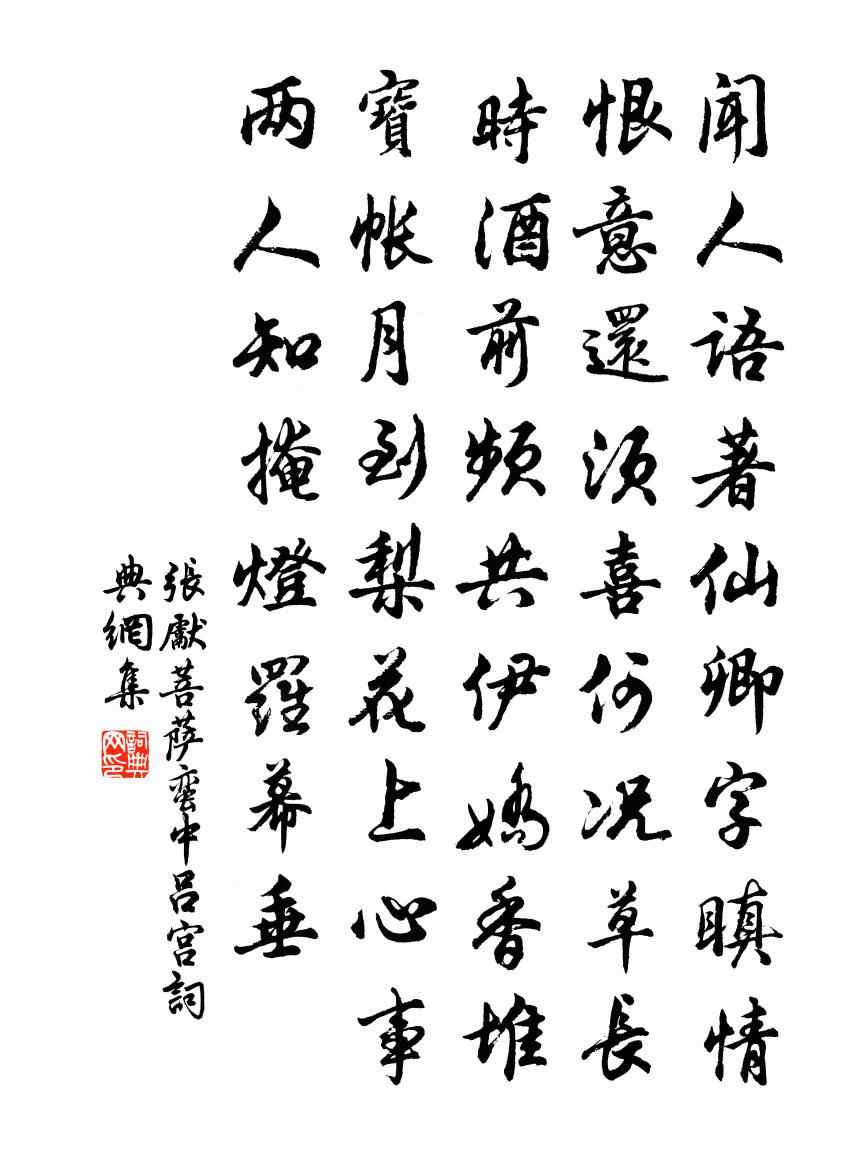 聞人語著仙卿字瞋情
恨意還須喜何況草長
時酒前頻共伊嬌香堆
寶帳月到梨花上心事
两人知掩燈羅幕垂
張獻菩萨蛮中呂宫詞
典網集
詞典网印